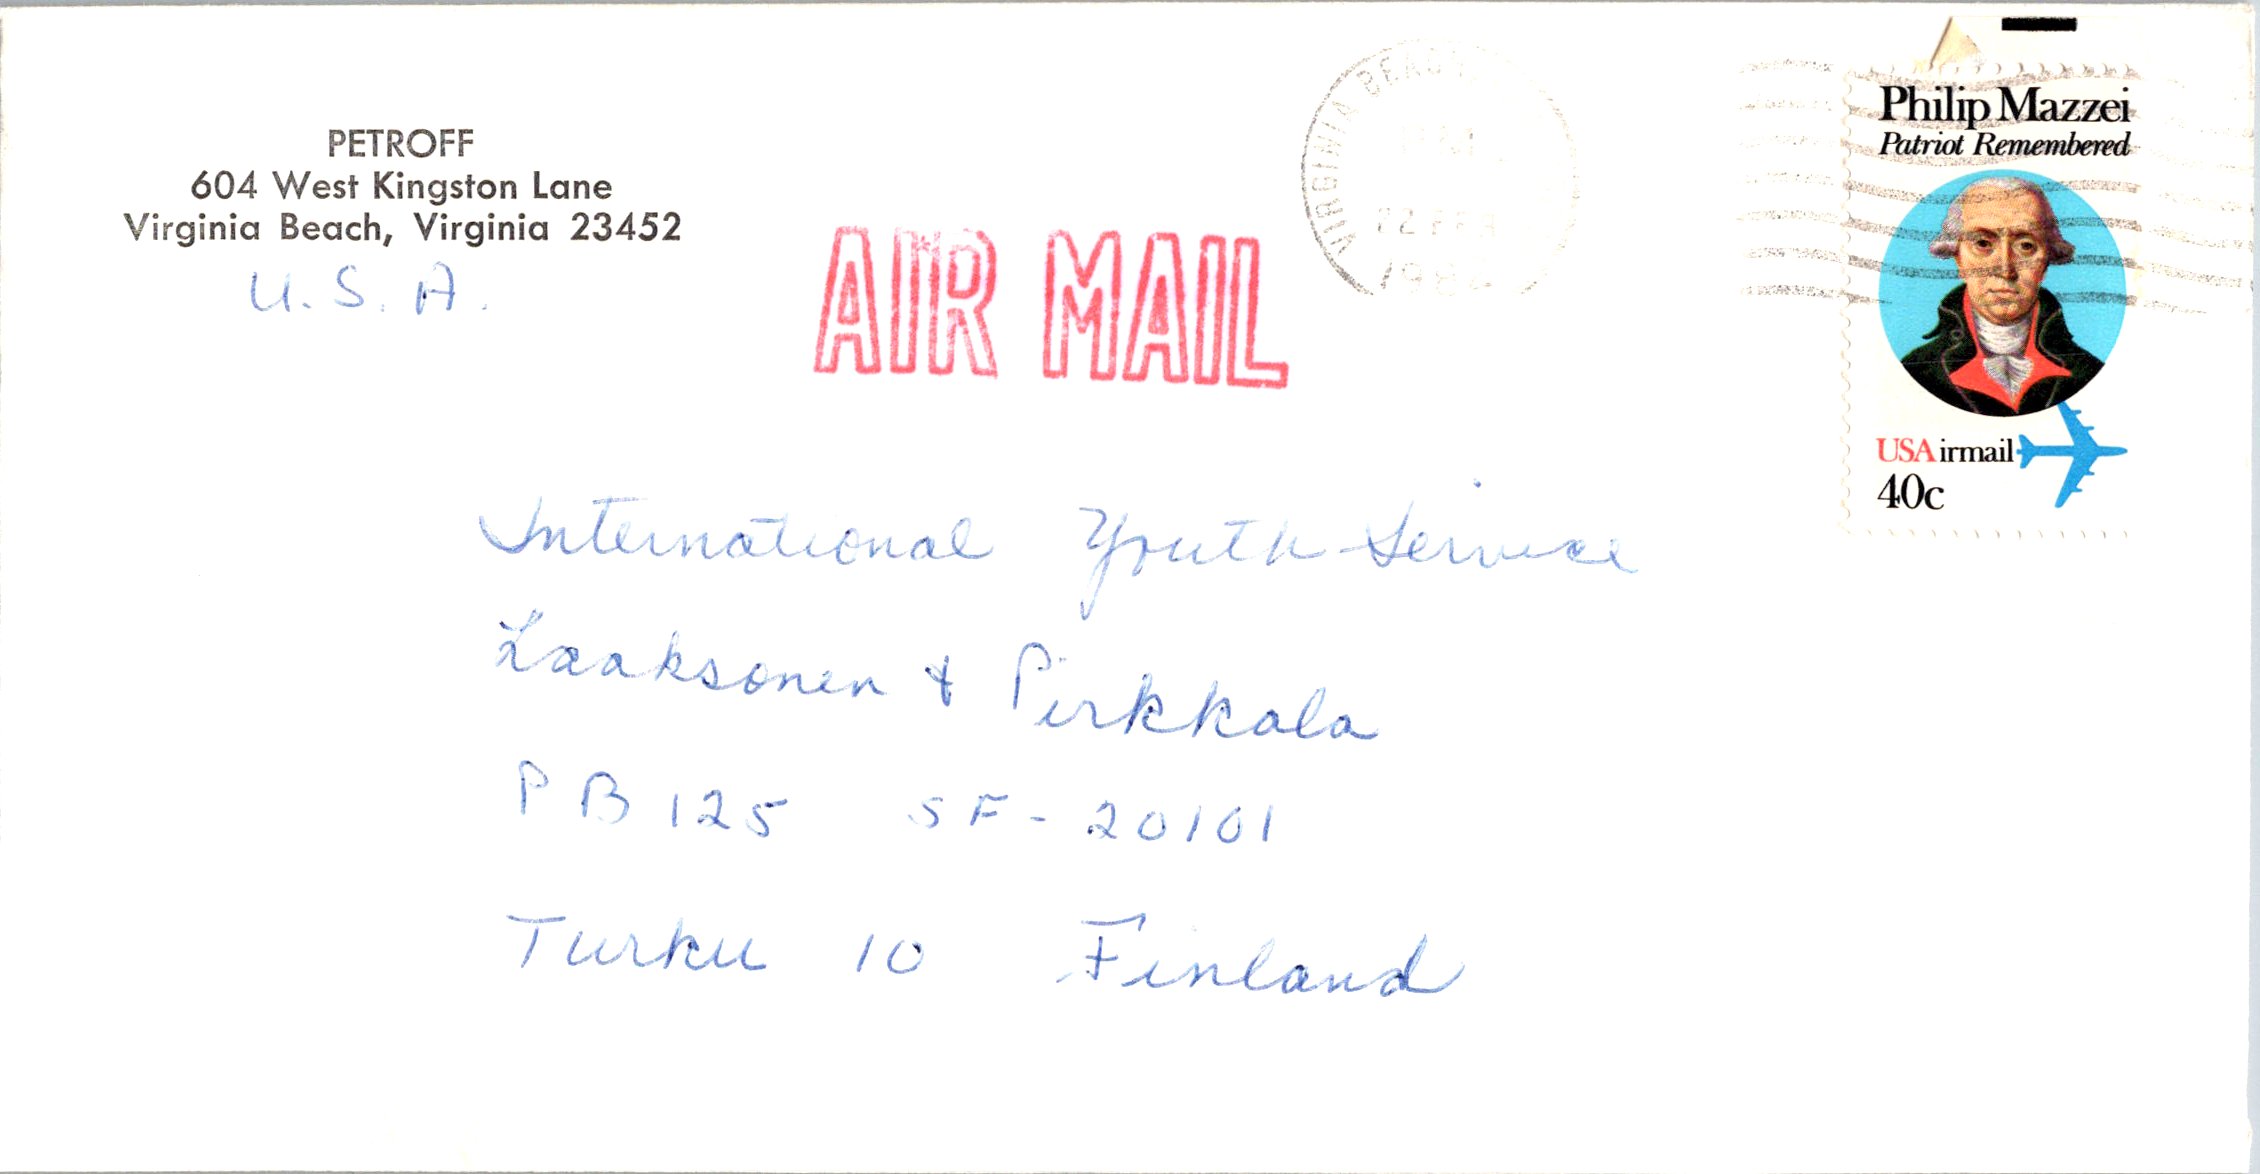 PETROFF
604 West Kingston Lane
Virginia Beach, Virginia 23452
U.S.A.
AIR MAIL
VIRGINIA BEACH
Philip Mazzei
Patriot Remembered
USAirmail
40c
International Youth Service
Laaksonen & Pirkkala
PB 125 SF-20101
Turku 10 Finland